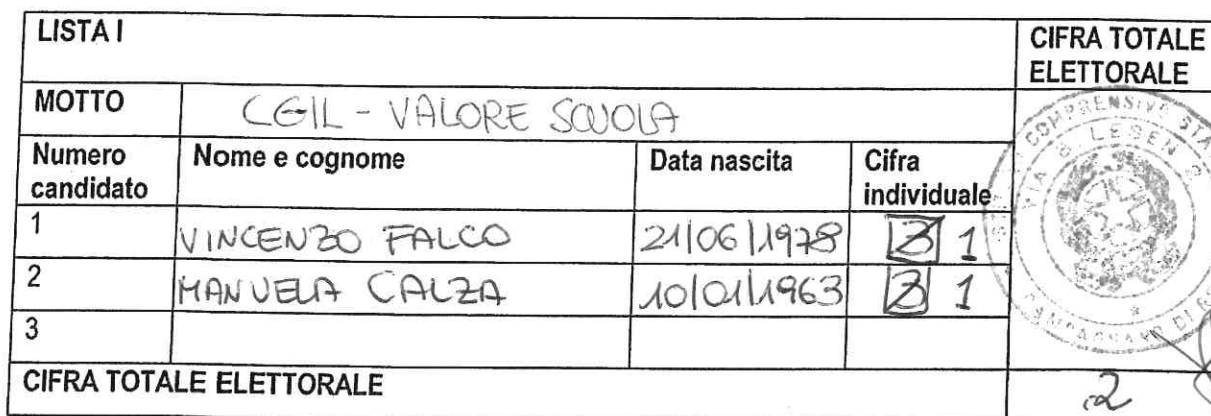 LISTA I
CIFRA TOTALE ELETTORALE
MOTTO CGIL - VALORE SCUOLA
Numero candidato Nome e cognome Data nascita Cifra individuale
1 VINCENZO FALCO 21/06/1978 3 1
2 MANUELA CALZA 10/01/1963 3 1
3
CIFRA TOTALE ELETTORALE 2
COMPRENSIVO STA
VIA B. LESEN
CAMPAGNANO DI